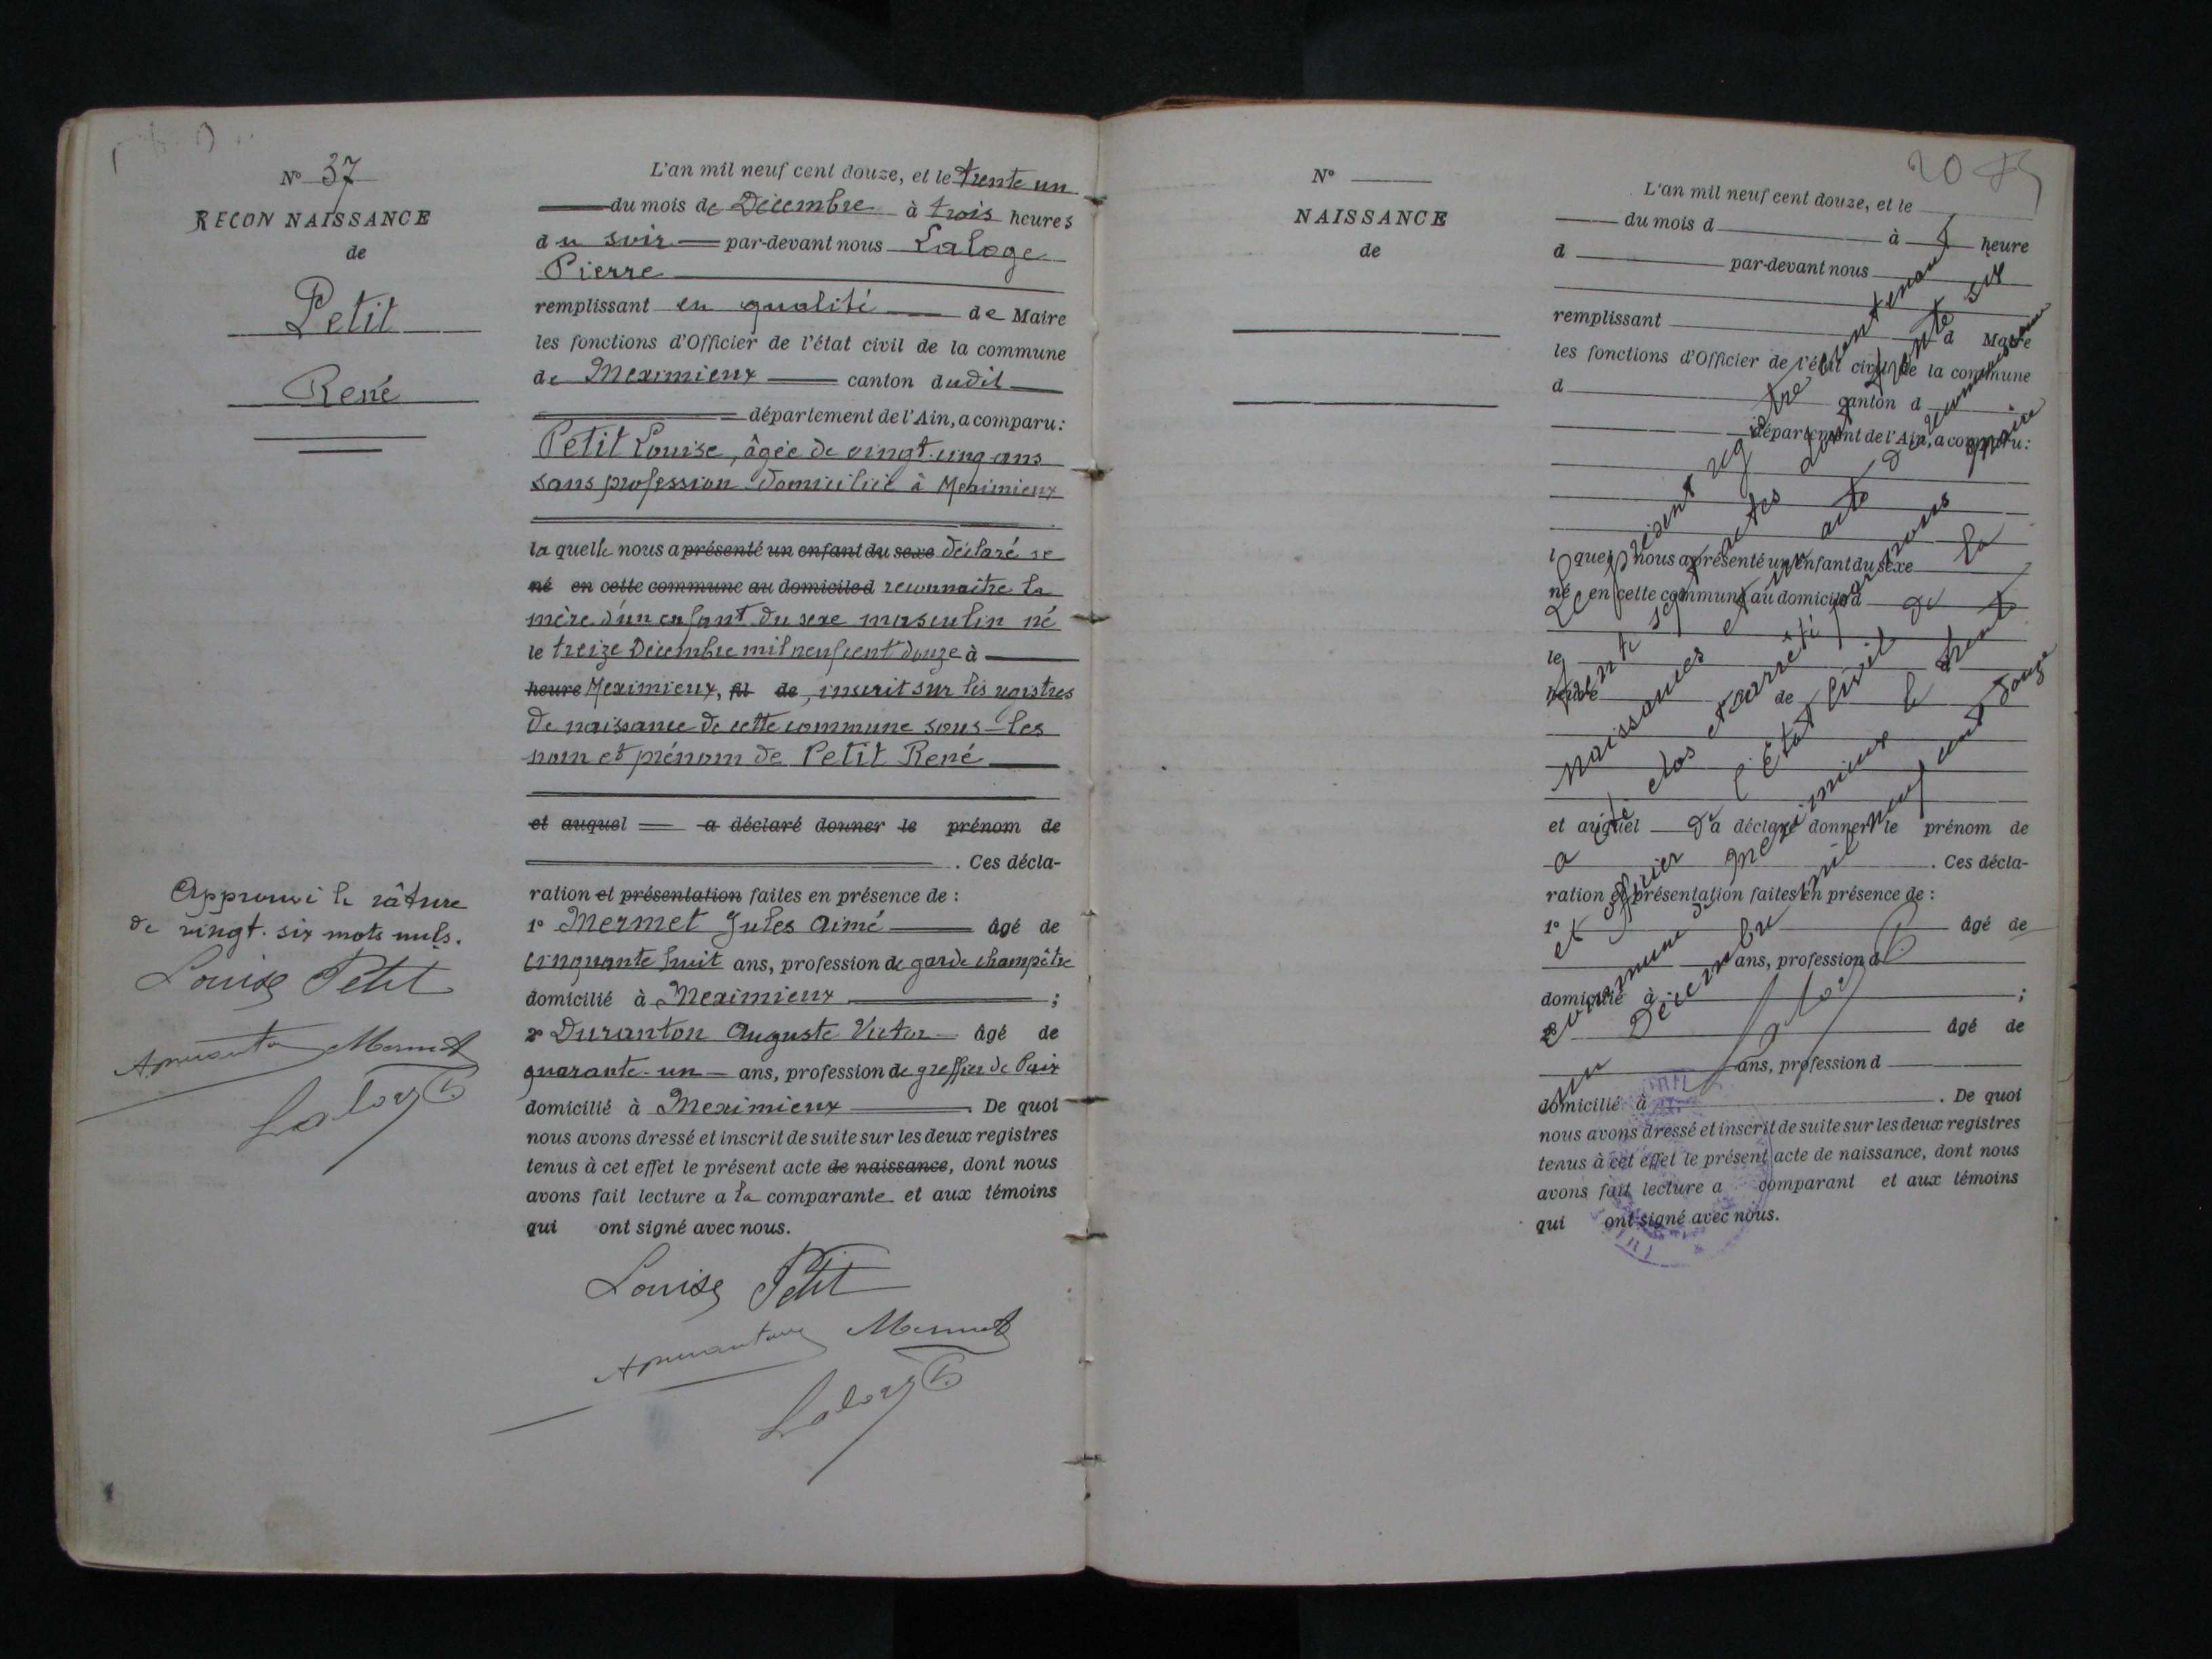 N° 37
RECONNAISSANCE
de
Petit
René
L'an mil neuf cent douze, et le trente un
du mois de Décembre à trois heures
du soir par-devant nous Laloge
Pierre
remplissant en qualité de Maire
les fonctions d'Officier de l'état civil de la commune
de Meximieux canton dudit
département de l'Ain, a comparu:
Petit Louise, âgée de vingt-cinq ans
sans profession domiciliée à Meximieux
la quelle nous a présenté un enfant du sexe déclaré se
né en cette commune au domicile d reconnaitre la
mère d'un enfant du sexe masculin né
le treize Décembre mil neuf cent douze à
heure Meximieux, fil de, inscrit sur les registres
de naissance de cette commune sous les
nom et prénom de Petit René
et auquel a déclaré donner le prénom de
. Ces décla-
ration et présentation faites en présence de :
1° Mermet Jules Aimé âgé de
cinquante huit ans, profession de garde champêtre
domicilié à Meximieux ;
2° Duranton Auguste Victor âgé de
quarante-un ans, profession de greffier de Paix
domicilié à Meximieux . De quoi
nous avons dressé et inscrit de suite sur les deux registres
tenus à cet effet le présent acte de naissance, dont nous
avons fait lecture a la comparante et aux témoins
qui ont signé avec nous.
Louise Petit
Mermet
Approuvé la râture
de vingt-six mots nuls.
Louise Petit
Mermet
N°
NAISSANCE
de
20
L'an mil neuf cent douze, et le
du mois d à heure
d par-devant nous
remplissant d Maire
les fonctions d'Officier de l'état civil de la commune
d canton d
département de l'Ain, a comparu:
l quel nous a présenté un enfant du sexe
né en cette commune au domicile d
le à
heure de
et auquel a déclaré donner le prénom de
. Ces décla-
ration et présentation faites en présence de :
1° âgé de
ans, profession d
domicilié à ;
2° âgé de
ans, profession d
domicilié à . De quoi
nous avons dressé et inscrit de suite sur les deux registres
tenus à cet effet le présent acte de naissance, dont nous
avons fait lecture a comparant et aux témoins
qui ont signé avec nous.
Le présent registre contenant
trente sept actes dont trente six
naissances et un acte de reconnaissance
a été clos et arrêté par nous maire
et officier de l'État Civil de la
commune de Meximieux le trente
un Décembre mil neuf cent douze